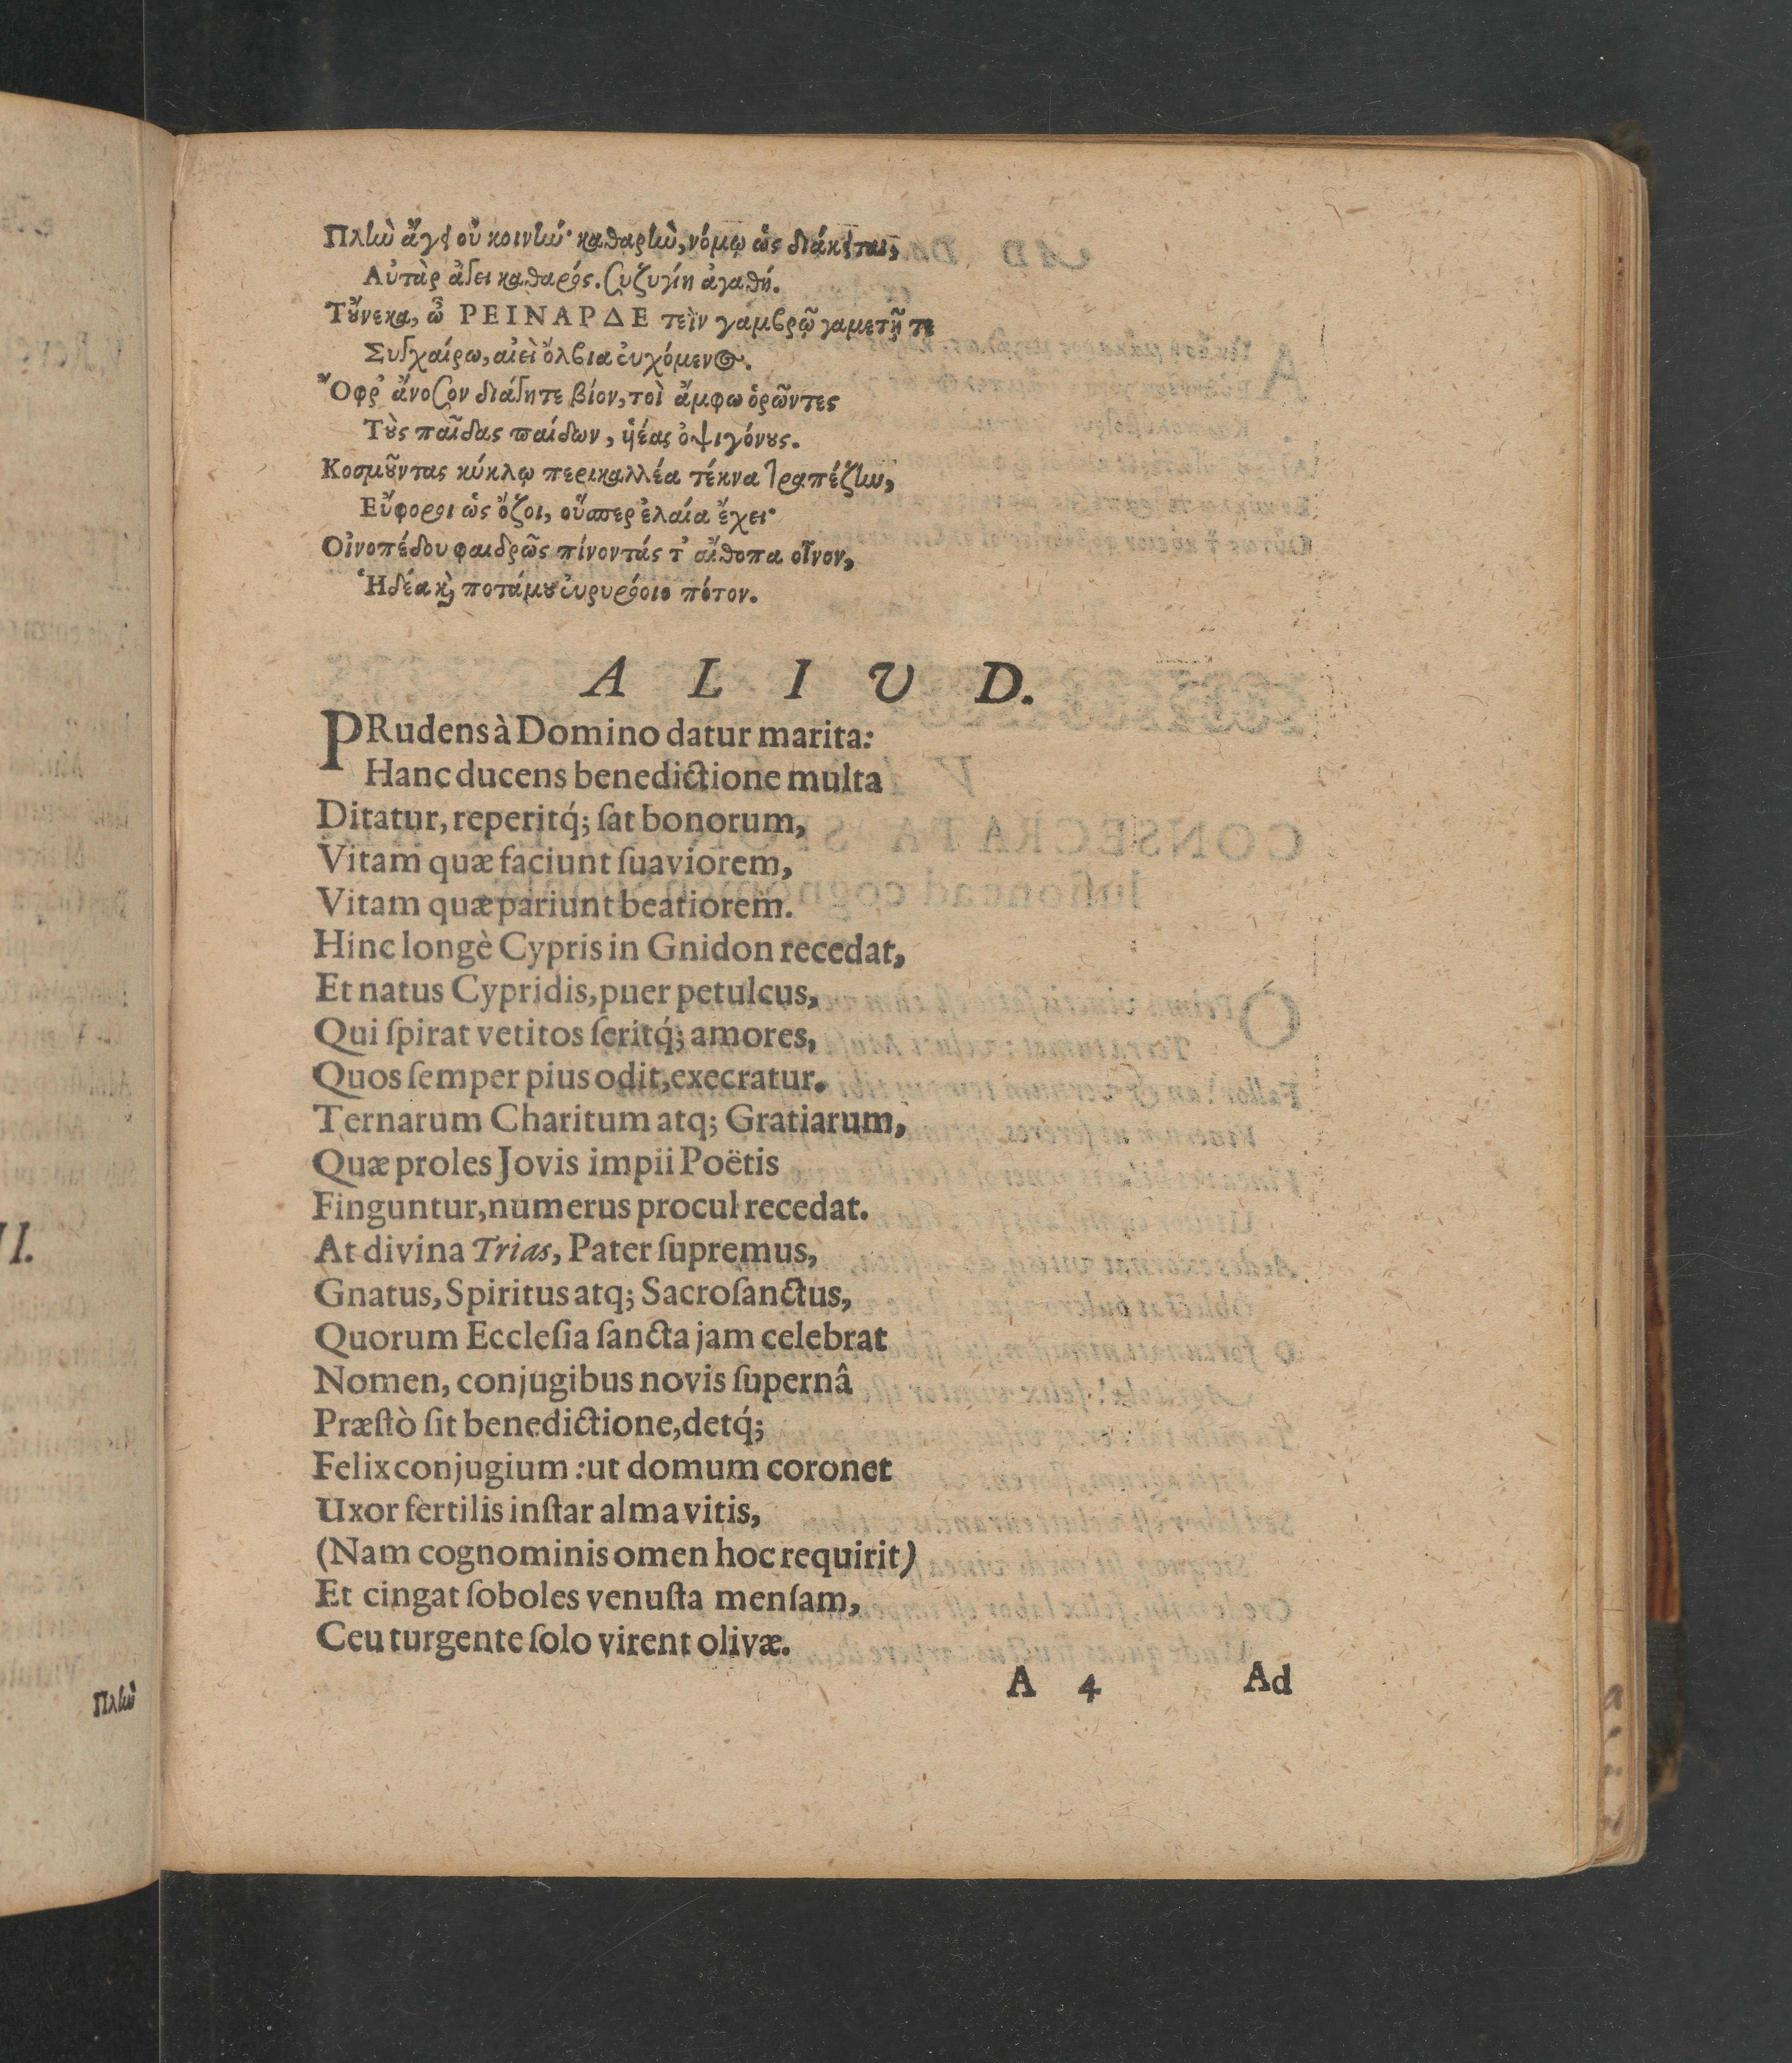 Πλὴν ἄγει οὐ κοινήν· καθαρὴν, νόμῳ ὡς διάκειται,
Αὐτὰρ ἄγει καθαρός. συζυγίη ἀγαθή.
Τοὔνεκα, ὦ ΡΕΙΝΑΡΔΕ τεῒν γαμβρῷ γαμετῇ τε
Συγχαίρω, αἰεὶ ὄλβια εὐχόμενος.
Ὄφρ' ἄνοσον διάγητε βίον, τοὶ ἄμφω ὁρῶντες
Τοὺς παῖδας παίδων, ἠέας ὀψιγόνους.
Κοσμοῦντας κύκλῳ περικαλλέα τέκνα τραπέζην,
Εὔφοροι ὡς ὄζοι, οὕσπερ ἐλαία ἔχει·
Οἰνοπέδου φαιδρῶς πίνοντάς τ' αἴθοπα οἶνον,
Ἡδέα καὶ ποτάμου εὐρυρόοιο πότον.
A L I V D.
PRudens à Domino datur marita:
Hanc ducens benedictione multa
Ditatur, reperitq́; ſat bonorum,
Vitam quæ faciunt ſuaviorem,
Vitam quæ pariunt beatiorem.
Hinc longè Cypris in Gnidon recedat,
Et natus Cypridis, puer petulcus,
Qui ſpirat vetitos ſeritq́; amores,
Quos ſemper pius odit, execratur.
Ternarum Charitum atq; Gratiarum,
Quæ proles Jovis impii Poëtis
Finguntur, numerus procul recedat.
At divina Trias, Pater ſupremus,
Gnatus, Spiritus atq; Sacroſanctus,
Quorum Eccleſia ſancta jam celebrat
Nomen, conjugibus novis ſupernâ
Præſtò ſit benedictione, detq́;
Felix conjugium: ut domum coronet
Uxor fertilis inſtar alma vitis,
(Nam cognominis omen hoc requirit)
Et cingat ſoboles venuſta menſam,
Ceu turgente ſolo virent olivæ.
A 4 Ad
II.
Πλὴν